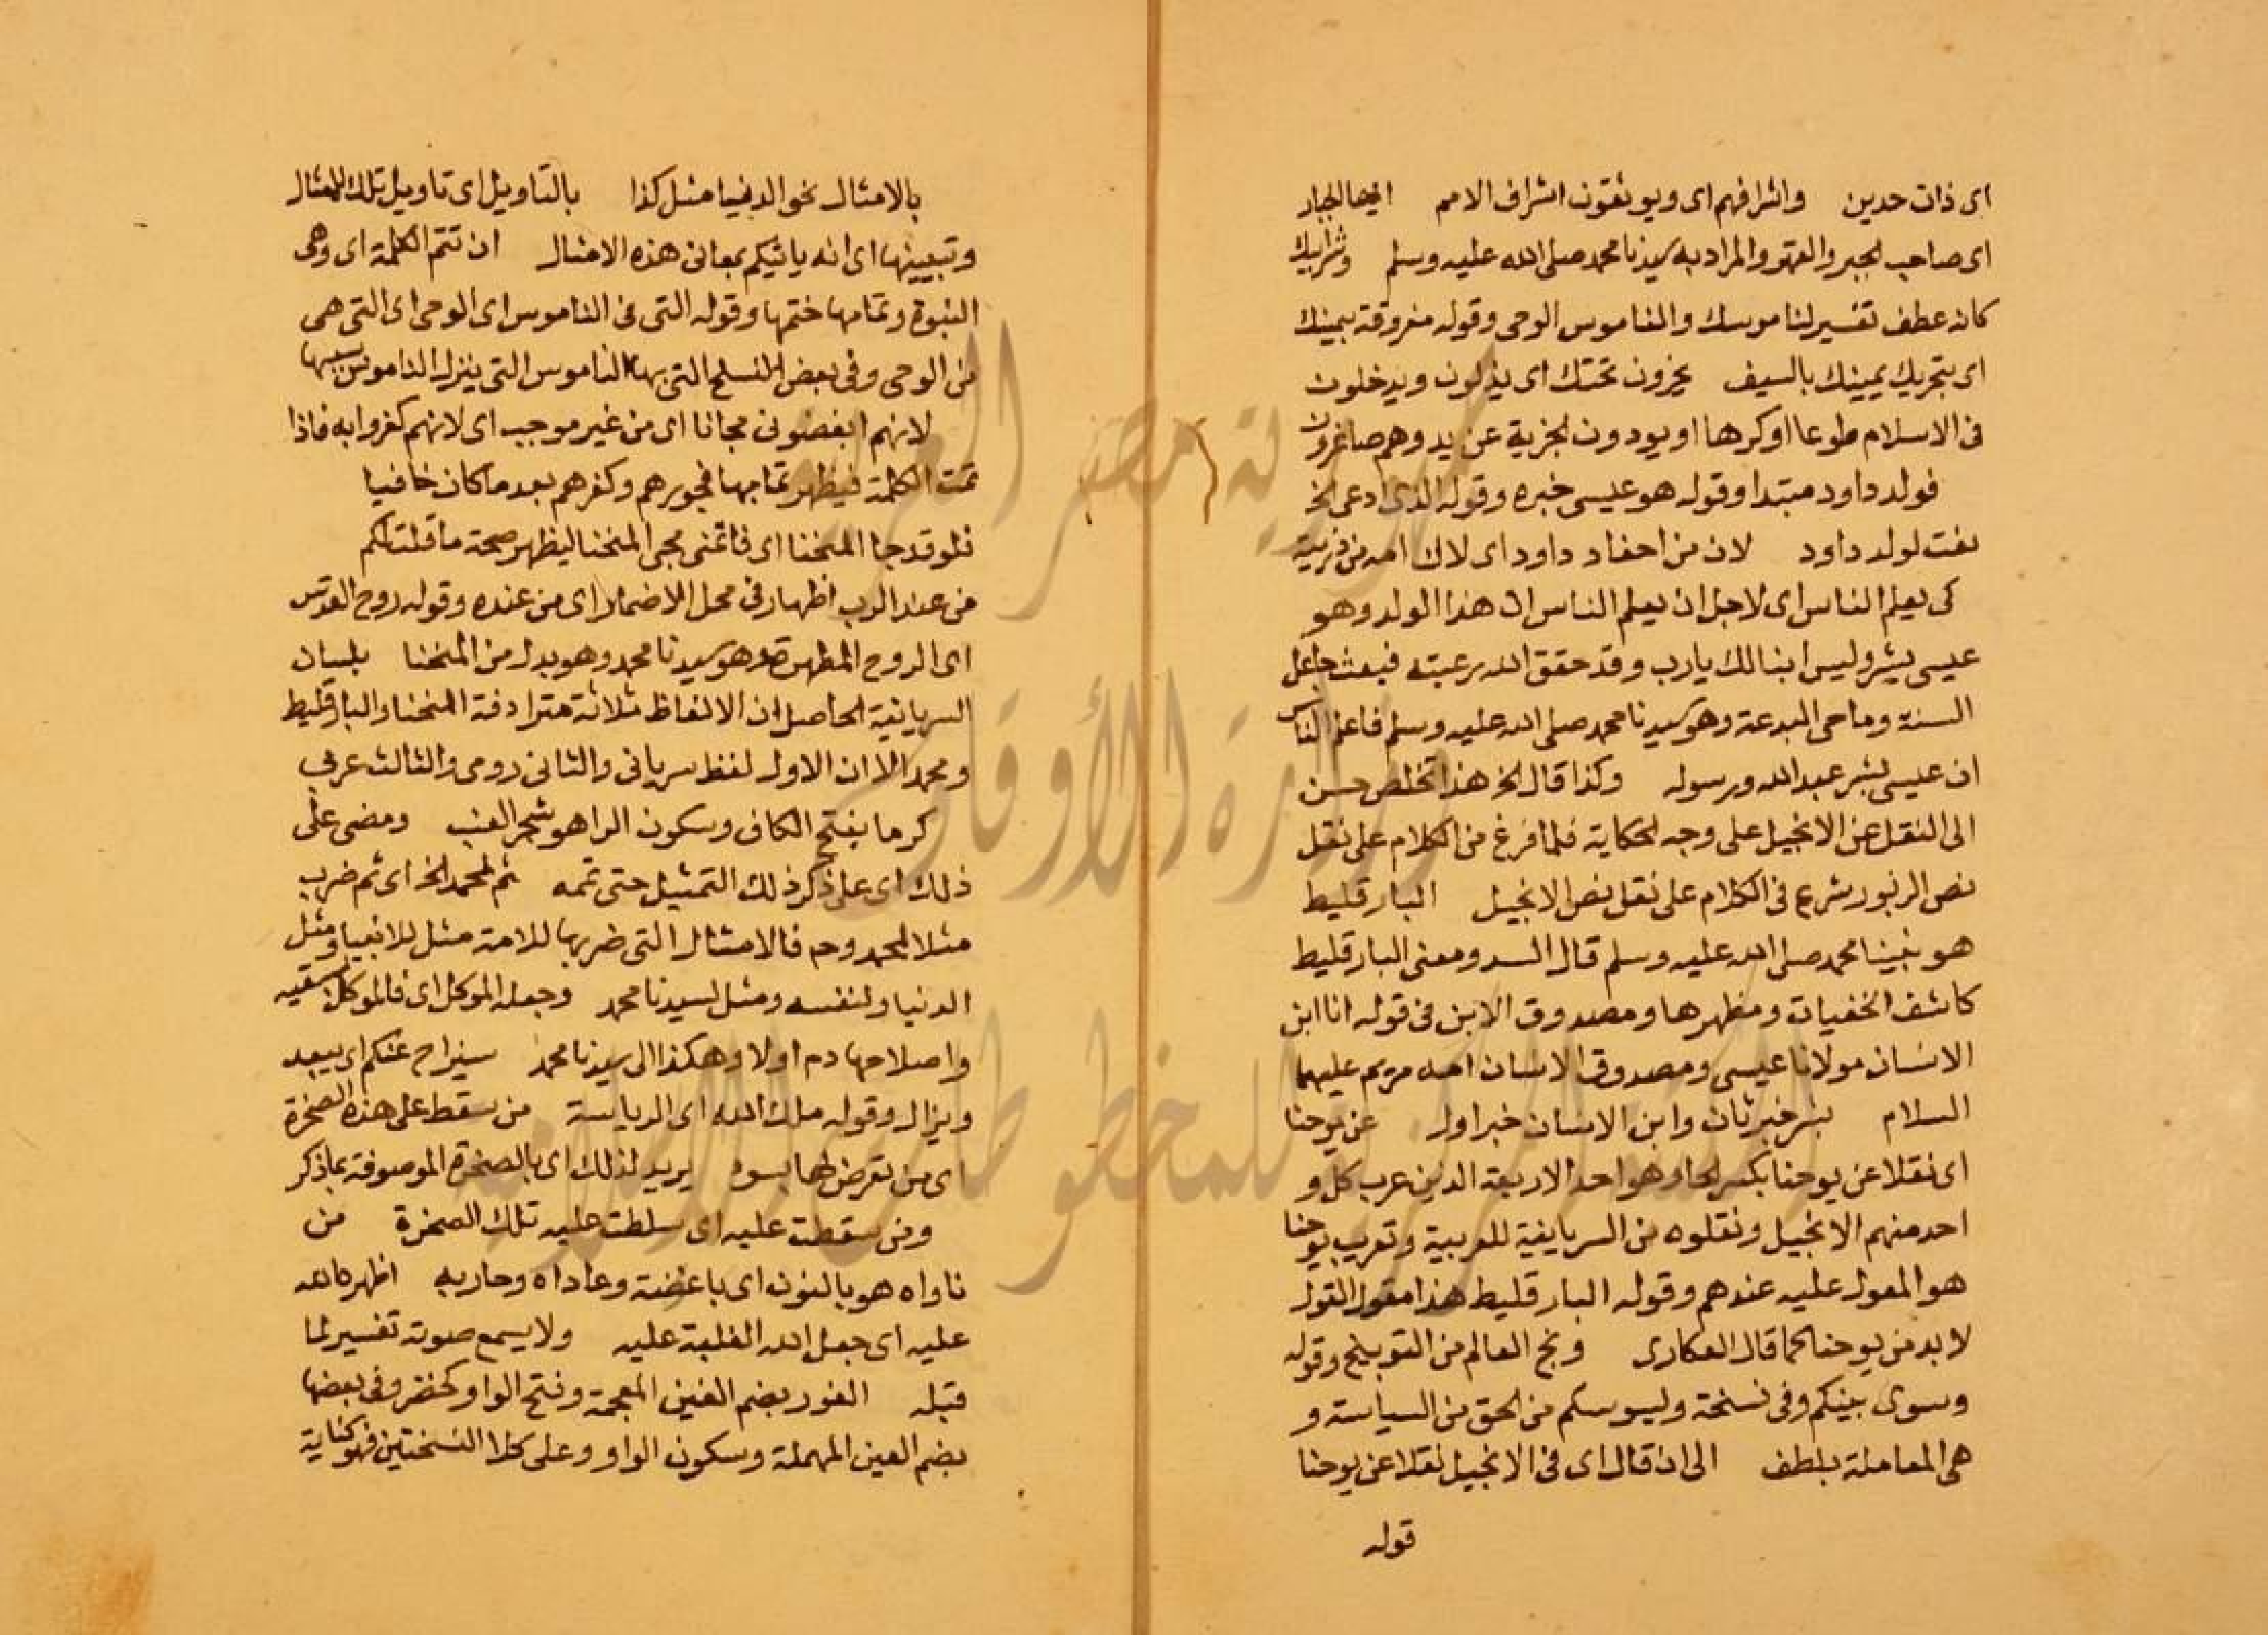 اى ذات حدين واشرافهم اى ويوثقون اشراف الامم ايها الجبار
اى صاحب الجبر والقهر والمراد به سيدنا محمد صلى الله عليه وسلم وشرايعك
كانه عطف تفسير لناموسك والناموس الوحى وقوله مقرونة بيمينك
اى بتحريك يمينك بالسيف يخرون تحتك اى يذلون ويدخلون
فى الاسلام طوعا او كرها او يودون الجزية عن يد وهم صاغرون
فولد داود مبتدا وقوله هو عيسى خبره وقوله الذى ادعى الخ
نعت لولد داود لانه من احفاد داود اى لان امه من ذريته
كى يعلم الناس اى لاجل ان يعلم الناس ان هذا الولد وهو
عيسى بشر وليس ابنا لك يارب وقد حقق الله رغبته فبعث جاعل
السنة وماحى البدعة وهو سيدنا محمد صلى الله عليه وسلم فاعلم الناس
ان عيسى بشر عبد الله ورسوله وكذا قال الخ هذا تخلص حسن
الى النقل عن الانجيل على وجه الحكاية فلما فرغ من الكلام على نقل
نص الزبور شرع فى الكلام على نقل نص الانجيل البارقليط
هو نبينا محمد صلى الله عليه وسلم قال السعد ومعنى البارقليط
كاشف الخفيات ومظهرها ومصدوق الابن فى قوله انا ابن
الانسان مولانا عيسى ومصدوق الانسان امه مريم عليهما
السلام بشر خبر ثان وابن الانسان خبر اول عن يوحنا
اى نقلا عن يوحنا بكسر الحا وهو احد الاربعة الذين عرب كل و
احد منهم الانجيل ونقلوه من السريانية للعربية وتعريب يوحنا
هو المعول عليه عندهم وقوله البارقليط هذا مقول القول
لا بد من يوحنا كما قال العكارى وبخ العالم من التوبيخ وقوله
وسوى بينكم وفى نسخة وليسوسكم من الحق من السياسة و
هى المعاملة بلطف الى ان قال اى فى الانجيل نقلا عن يوحنا
قوله
بالامثال نحو الدنيا مثل كذا بالتاويل اى تاويل تلك الامثال
وتبيينها اى انه ياتيكم بمعانى هذه الامثال ان تتم الكلمة اى وهى
النبوة وتمامها ختمها وقوله التى فى الناموس اى الوحى اى التى هى
من الوحى وفى بعض النسخ التى بها الناموس التى ينزل الناموس بسببها
لانهم ابغضونى مجانا اى من غير موجب اى لانهم كفروا به فاذا
تمت الكلمة فيظهر تمامها فجورهم وكفرهم بعد ما كان خافيا
فلو قد جا المنحنا اى فاتمنى مجى المنحنا ليظهر صحة ما قلت لكم
من عند الرب اظهار فى محل الاضمار اى من عنده وقوله روح القدس
اى الروح المطهرة وهو سيدنا محمد وهو بدل من المنحنا بلسان
السريانية الحاصل ان الالفاظ ثلاثة مترادفة المنحنا والبارقليط
ومحمد الا ان الاول لفظ سريانى والثانى رومى والثالث عربى
كرما بفتح الكاف وسكون الرا هو شجر العنب ومضى على
ذلك اى على ذكر ذلك التمثيل حتى تمه ثم لمحمد الخ اى ثم ضرب
مثلا لمحمد فالامثال التى ضربها للامة مثل للانبيا ومثل
الدنيا ولنفسه ومثل لسيدنا محمد وجعله الموكل اى فالموكل بسقيه
واصلاحها دم اولا وهكذا الى سيدنا محمد سيزاح عنكم اى يبعد
ويزال وقوله ملك الله اى الرياسة من سقط على هذه الصخرة
اى من تعرض لها بسوء يريد لذلك اى بالصخرة الموصوفة بما ذكر
ومن سقطت عليه اى سلطت عليه تلك الصخرة من
ناواه هو بالنون اى باغضه وعاداه وحاربه اظهره الله
عليه اى جعل الله الغلبة عليه ولا يسمع صوته تفسير لما
قبله الغور بضم الغين المعجمة وفتح الواو وفى بعضها
بضم العين المهملة وسكون الواو وعلى كلا النسختين فهو كناية